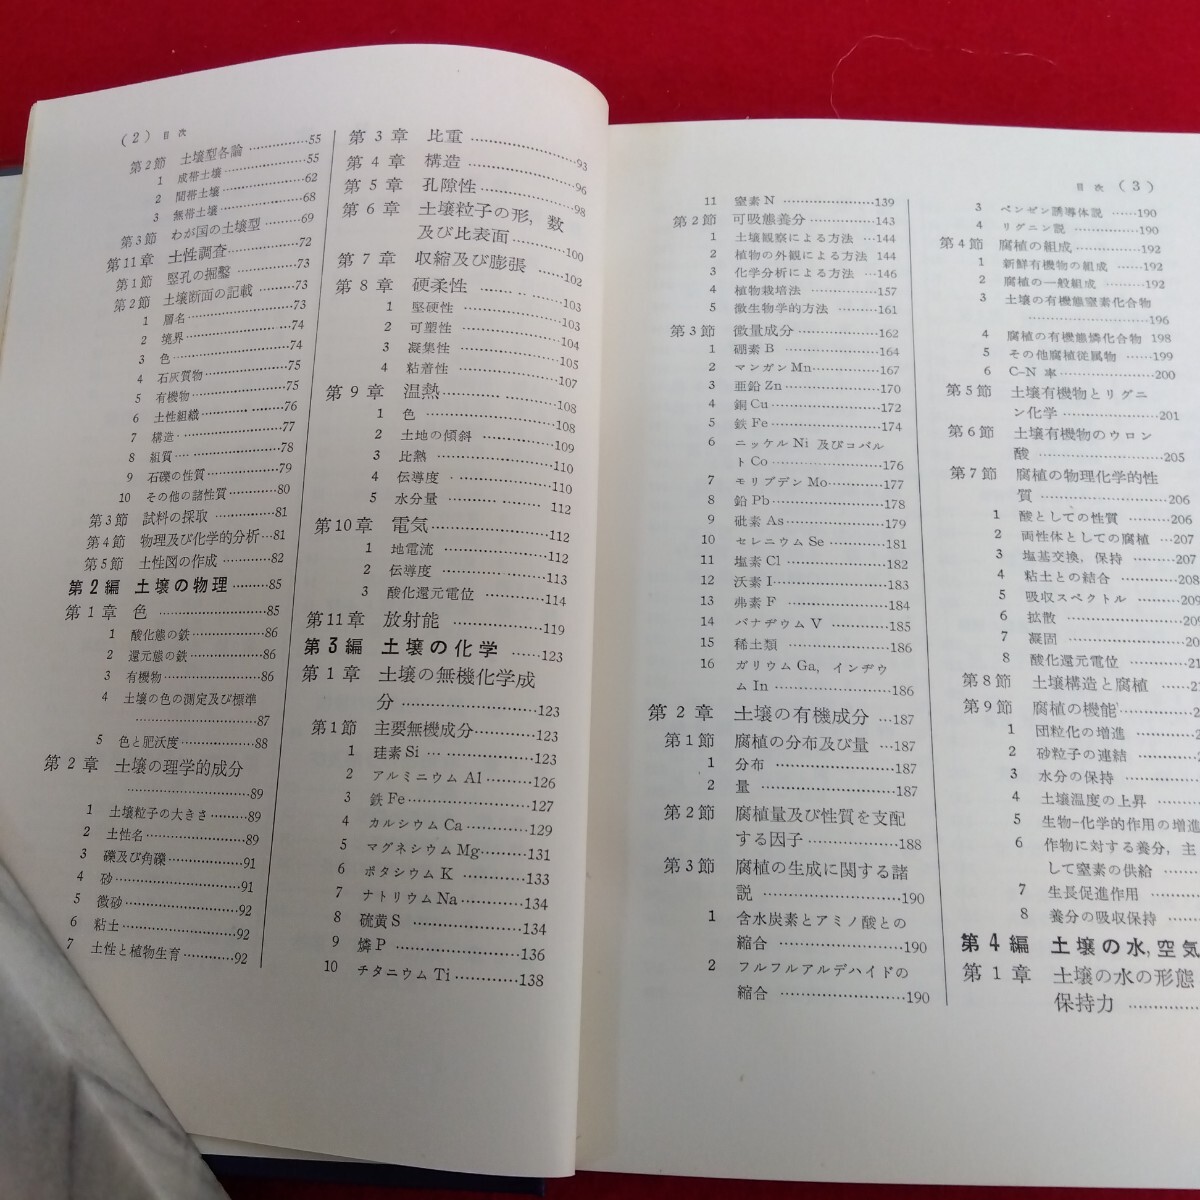 (2) 目次
第2節 土壌型各論……………55
1 成帯土壌……………55
2 間帯土壌……………62
3 無帯土壌……………68
第3節 わが国の土壌型……69
第11章 土性調査……………72
第1節 竪孔の掘鑿……………73
第2節 土壌断面の記載………73
1 層名……………73
2 境界……………74
3 色……………74
4 石灰質物……………75
5 有機物……………75
6 土性組織……………76
7 構造……………77
8 組質……………78
9 石礫の性質……………79
10 その他の諸性質…………80
第3節 試料の採取……………81
第4節 物理及び化学的分析…81
第5節 土性図の作成…………82
第2編 土壌の物理………85
第1章 色……………85
1 酸化態の鉄……………86
2 還元態の鉄……………86
3 有機物……………86
4 土壌の色の測定及び標準
……………87
5 色と肥沃度……………88
第2章 土壌の理学的成分
……………89
1 土壌粒子の大きさ………89
2 土性名……………89
3 礫及び角礫……………91
4 砂……………91
5 微砂……………92
6 粘土……………92
7 土性と植物生育…………92
第3章 比重……………93
第4章 構造……………96
第5章 孔隙性……………98
第6章 土壌粒子の形，数
及び比表面…………100
第7章 収縮及び膨張……102
第8章 硬柔性……………103
1 堅硬性……………103
2 可塑性……………104
3 凝集性……………105
4 粘着性……………107
第9章 温熱……………108
1 色……………108
2 土地の傾斜……………109
3 比熱……………110
4 伝導度……………110
5 水分量……………112
第10章 電気……………112
1 地電流……………112
2 伝導度……………113
3 酸化還元電位…………114
第11章 放射能……………119
第3編 土壌の化学……123
第1章 土壌の無機化学成
分……………123
第1節 主要無機成分…………123
1 珪素Si……………123
2 アルミニウムAl………126
3 鉄Fe……………127
4 カルシウムCa…………129
5 マグネシウムMg………131
6 ポタシウムK…………133
7 ナトリウムNa…………134
8 硫黄S……………134
9 燐P……………136
10 チタニウムTi…………138
目次 (3)
11 窒素N……………139
第2節 可吸態養分……………143
1 土壌観察による方法……144
2 植物の外観による方法 144
3 化学分析による方法……146
4 植物栽培法……………157
5 微生物学的方法…………161
第3節 微量成分……………162
1 硼素B……………164
2 マンガンMn……………167
3 亜鉛Zn……………170
4 銅Cu……………172
5 鉄Fe……………174
6 ニッケルNi及びコバル
トCo……………176
7 モリブデンMo…………177
8 鉛Pb……………178
9 砒素As……………179
10 セレニウムSe…………181
11 塩素Cl……………182
12 沃素I……………183
13 弗素F……………184
14 バナヂウムV…………185
15 稀土類……………186
16 ガリウムGa，インヂウ
ムIn……………186
第2章 土壌の有機成分…187
第1節 腐植の分布及び量…187
1 分布……………187
2 量……………187
第2節 腐植量及び性質を支配
する因子……………188
第3節 腐植の生成に関する諸
説……………190
1 含水炭素とアミノ酸との
縮合……………190
2 フルフルアルデハイドの
縮合……………190
3 ベンゼン誘導体説……190
4 リグニン説……………190
第4節 腐植の組成……………192
1 新鮮有機物の組成……192
2 腐植の一般組成…………192
3 土壌の有機態窒素化合物
……………196
4 腐植の有機態燐化合物 198
5 その他腐植従属物……199
6 C-N率……………200
第5節 土壌有機物とリグニ
ン化学……………201
第6節 土壌有機物のウロン
酸……………205
第7節 腐植の物理化学的性
質……………206
1 酸としての性質…………206
2 両性体としての腐植…207
3 塩基交換，保持…………207
4 粘土との結合…………208
5 吸収スペクトル…………209
6 拡散……………209
7 凝固……………
8 酸化還元電位…………
第8節 土壌構造と腐植……
第9節 腐植の機能……………
1 団粒化の増進…………
2 砂粒子の連結…………
3 水分の保持……………
4 土壌温度の上昇………
5 生物-化学的作用の増進
6 作物に対する養分，主
して窒素の供給………
7 生長促進作用…………
8 養分の吸収保持………
第4編 土壌の水，空気
第1章 土壌の水の形態
保持力……………